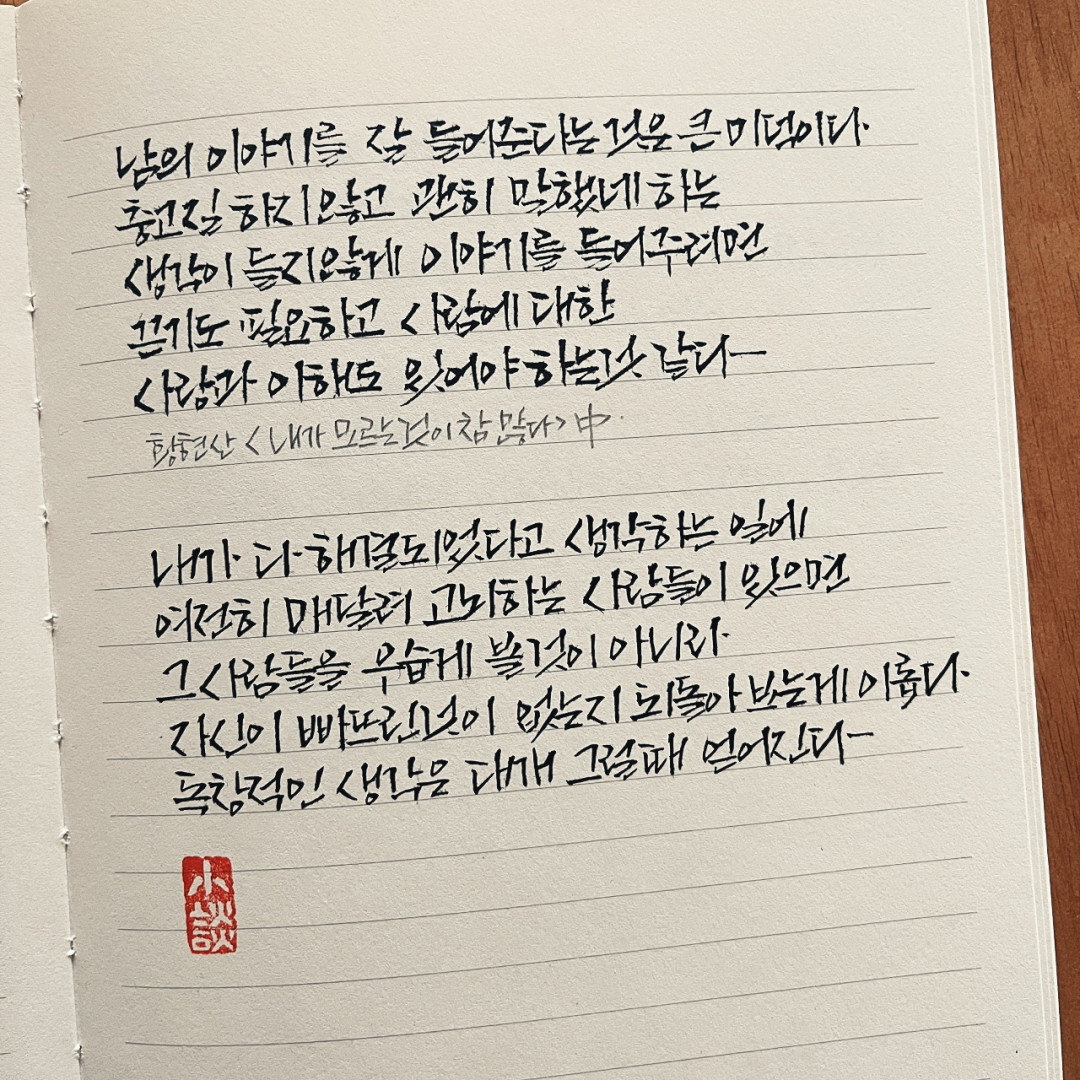 남의 이야기를 잘 들어준다는것은 큰 미덕이다.
충고질 하지않고 괜히 말했네 하는
생각이 들지않게 이야기를 들어주려면
끈기도 필요하고 사람에 대한
사랑과 이해도 있어야 하는것 같다—
황현산 <내가 모르는것이 참 많다> 中.
내가 다 해결되었다고 생각하는 일에
여전히 매달려 고뇌하는 사람들이 있으면
그사람들을 우습게 볼것이 아니라
자신이 빠뜨린것이 없는지 되돌아 보는게 이롭다.
독창적인 생각은 대개 그럴때 얻어진다—
小談